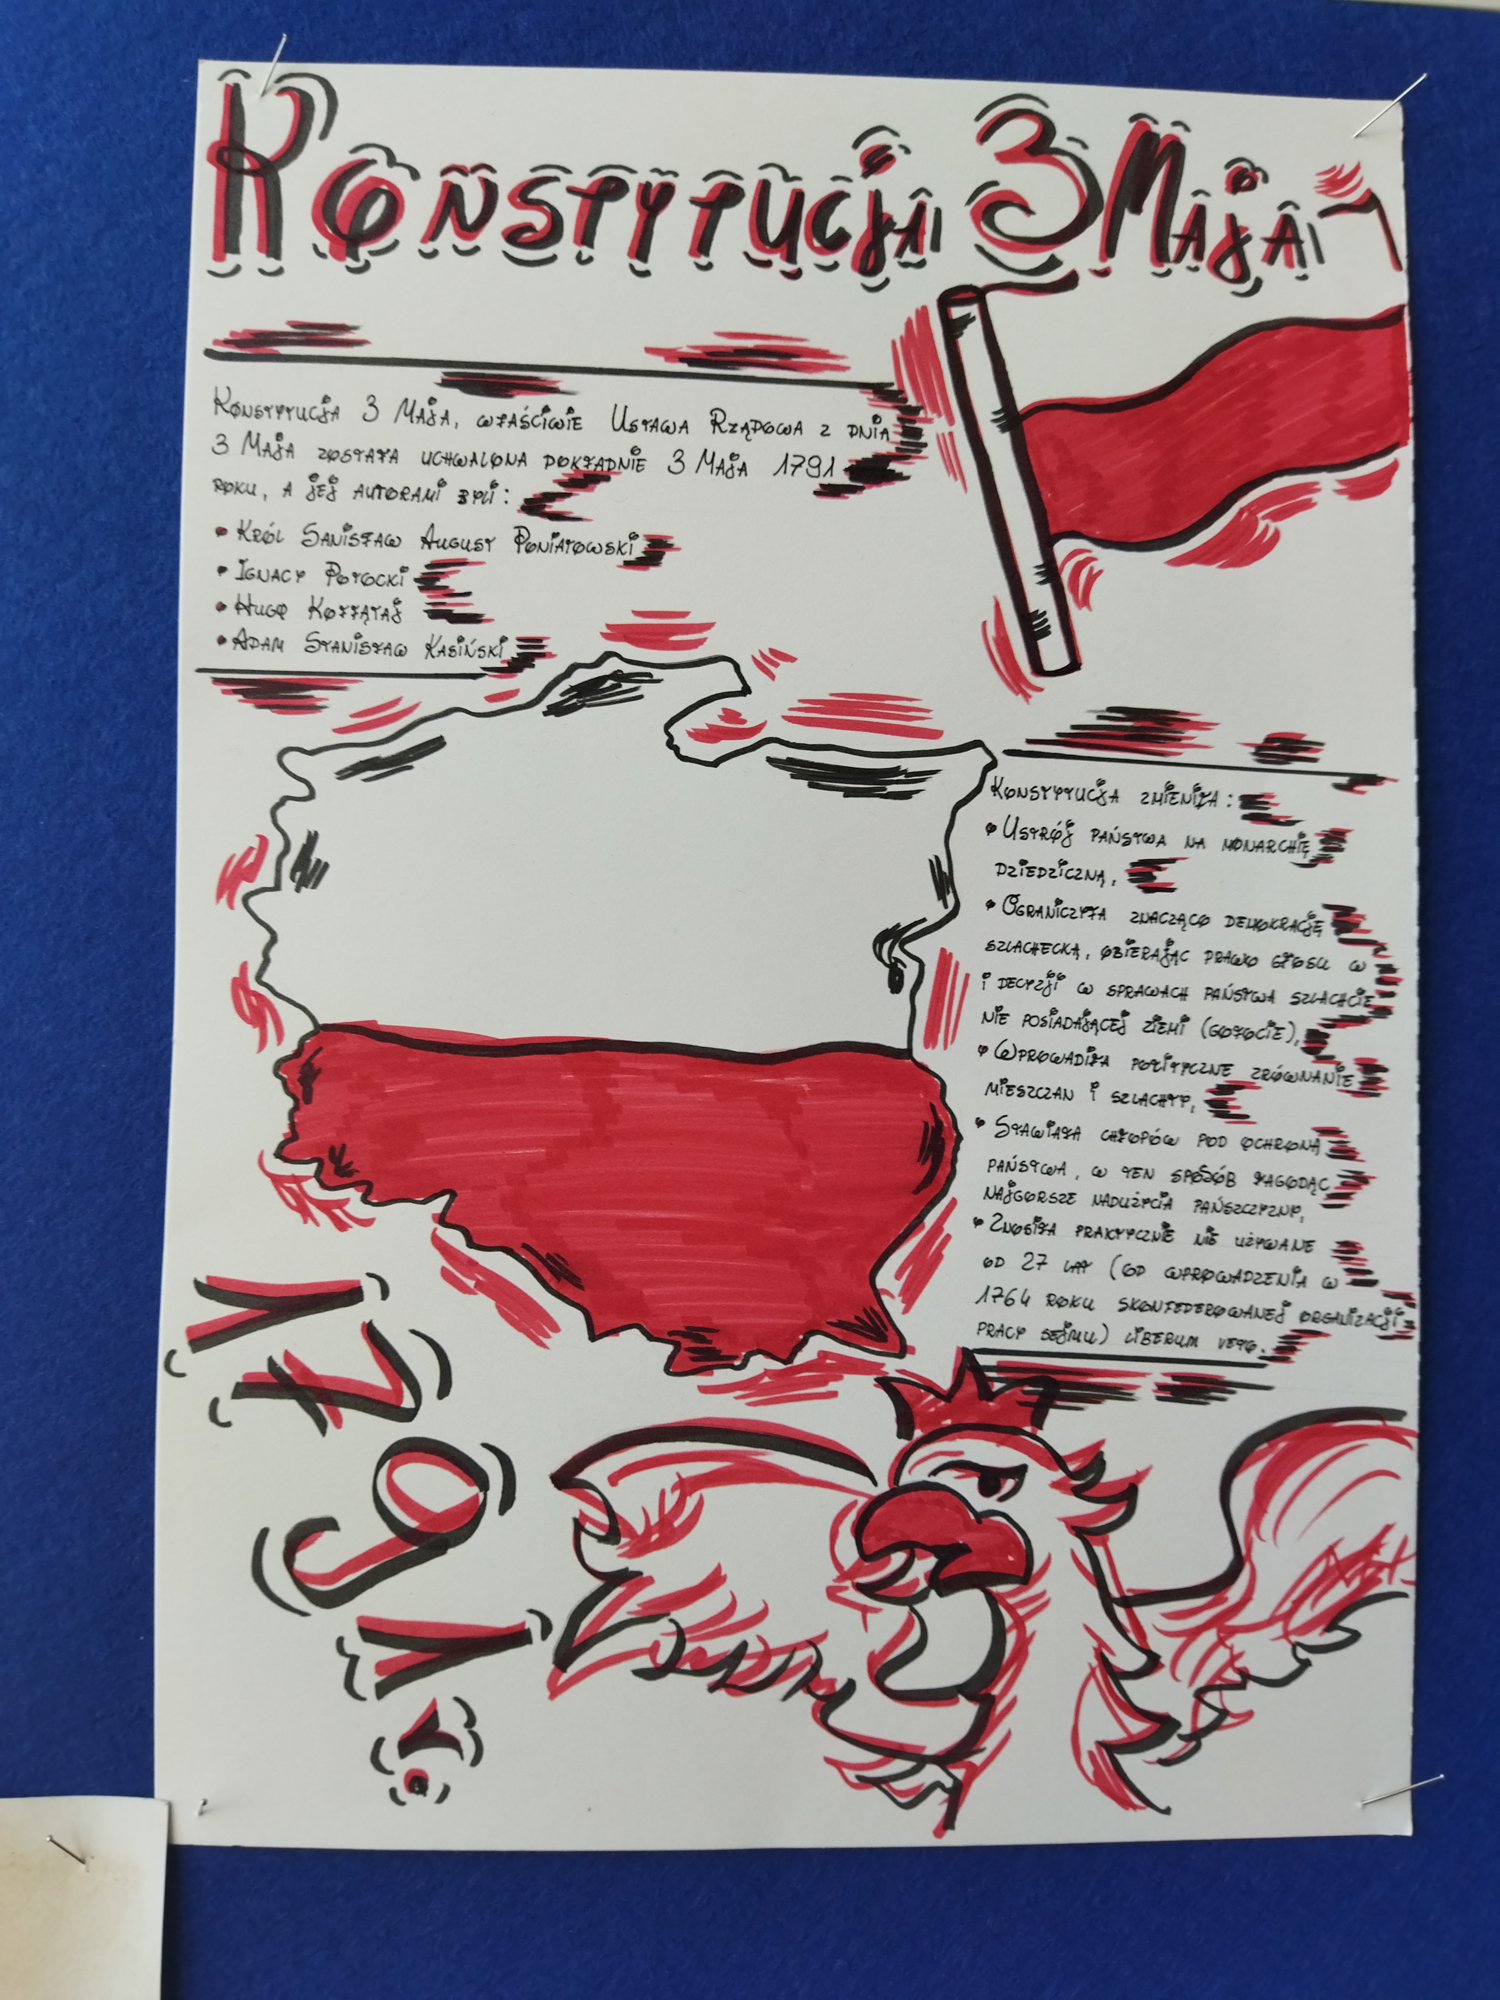 Konstytucja 3 Maja
Konstytucja 3 Maja, właściwie Ustawa Rządowa z dnia
3 Maja została uchwalona dokładnie 3 Maja 1791
roku, a jej autorami byli:
• Król Sanisław August Poniatowski
• Ignacy Potocki
• Hugo Kołłątaj
• Adam Stanisław Kasiński
Konstytucja zmieniła:
• Ustrój państwa na monarchię
dziedziczną,
• Ograniczyła znacząco demokrację
szlachecką, obierając prawo głosu w
i decyzji w sprawach państwa szlachcie
nie posiadającej ziemi (gołocie),
• Wprowadiła polityczne zrównanie
mieszczan i szlachty,
• Stawiała chłopów pod ochroną
państwa, w ten sposób łagodąc
najgorsze nadużycia pańszczyzny,
• Znosiła praktycznie nie używane
od 27 lat (od wprowadzenia w
1764 roku skonfederowanej organizacji
pracy sejmu) liberum veto.
1791r.